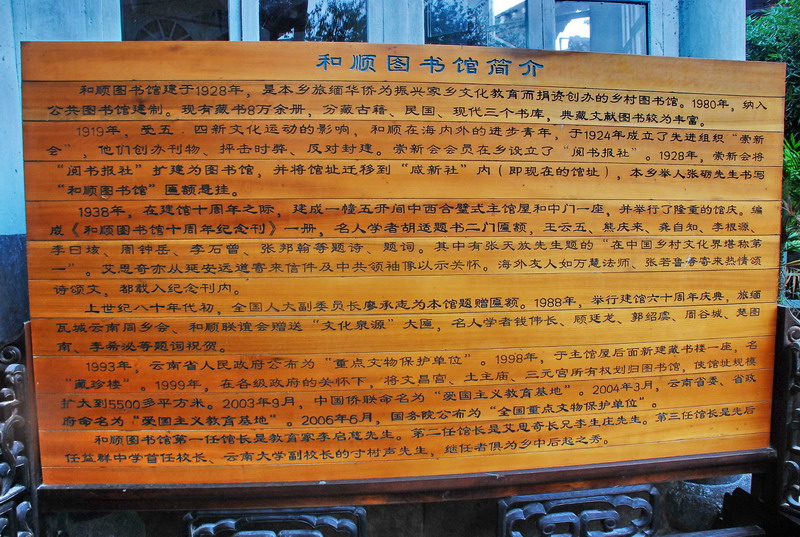 和顺图书馆简介
和顺图书馆建于1928年，是本乡旅缅华侨为振兴家乡文化教育而捐资创办的乡村图书馆。1980年，纳入
公共图书馆建制。现有藏书8万余册，分藏古籍、民国、现代三个书库，典藏文献图书较为丰富。
1919年，受五．四新文化运动的影响，和顺在海内外的进步青年，于1924年成立了先进组织“崇新
会”，他们创办刊物、抨击时弊、反对封建。崇新会会员在乡设立了“阅书报社”。1928年，崇新会将
“阅书报社”扩建为图书馆，并将馆址迁移到“咸新社”内（即现在的馆址），本乡举人张砺先生书写
“和顺图书馆”匾额悬挂。
1938年，在建馆十周年之际，建成一幢五开间中西合璧式主馆屋和中门一座，并举行了隆重的馆庆。编
成《和顺图书馆十周年纪念刊》一册，名人学者胡适题书二门匾额，王云五、熊庆来、龚自知、李根源、
李曰垓、周钟岳、李石曾、张邦翰等题诗、题词。其中有张天放先生题的“在中国乡村文化界堪称第
一”。艾思奇亦从延安远道寄来信件及中共领袖像以示关怀。海外友人如万慧法师、张若鲁等寄来热情颂
诗颂文，都载入纪念刊内。
上世纪八十年代初，全国人大副委员长廖承志为本馆题赠匾额。1988年，举行建馆六十周年庆典，旅缅
瓦城云南同乡会、和顺联谊会赠送“文化泉源”大匾，名人学者钱伟长、顾廷龙、郭绍虞、周谷城、楚图
南、李希泌等题词祝贺。
1993年，云南省人民政府公布为“重点文物保护单位”。1998年，于主馆屋后面新建藏书楼一座，名
“藏珍楼”。1999年，在各级政府的关怀下，将文昌宫、土主庙、三元宫所有权划归图书馆，使馆址规模
扩大到5500多平方米。2003年9月，中国侨联命名为“爱国主义教育基地”。2004年3月，云南省委、省政
府命名为“爱国主义教育基地”。2006年6月，国务院公布为“全国重点文物保护单位”。
和顺图书馆第一任馆长是教育家李启慈先生。第二任馆长是艾思奇长兄李生庄先生。第三任馆长是先后
任益群中学首任校长、云南大学副校长的寸树声先生，继任者俱为乡中后起之秀。